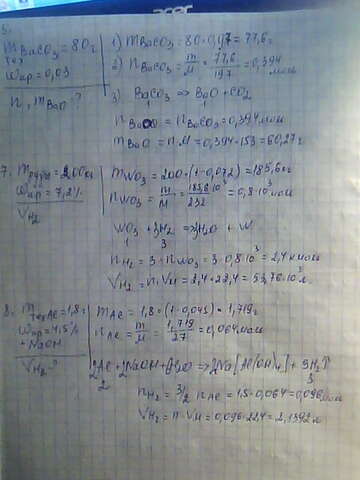 acer
5.
m BaCO3 = 80г
тех
ωпр = 0,03
n, m BaO - ?
1) m BaCO3 = 80 · 0,97 = 77,6г
2) n BaCO3 = m/M = 77,6/197 = 0,394 моль
3) BaCO3 => BaO + CO2
1 1
n BaO = n BaCO3 = 0,394 моль
m BaO = n · M = 0,394 · 153 = 60,27г
7. m руды = 200кг
ωпр = 7,2%
V H2
m WO3 = 200 · (1-0,072) = 185,6кг
n WO3 = m/M = 185,6·10³/232 = 0,8·10³ моль
WO3 + 3H2 => 3H2O + W
1 3
n H2 = 3 · n WO3 = 3 · 0,8·10³ = 2,4 кмоль
V H2 = n · VM = 2,4 · 22,4 = 53,76·10³л
8. m тех Al = 1,8г
ωпр = 4,5%
+ NaOH
V H2 - ?
m Al = 1,8 · (1-0,045) = 1,719г
n Al = m/M = 1,719/27 = 0,064 моль
2Al + 2NaOH + 6H2O => 2Na[Al(OH)4] + 3H2↑
2 3
n H2 = 3/2 n Al = 1,5 · 0,064 = 0,096 моль
V H2 = n · VM = 0,096 · 22,4 = 2,1392 л